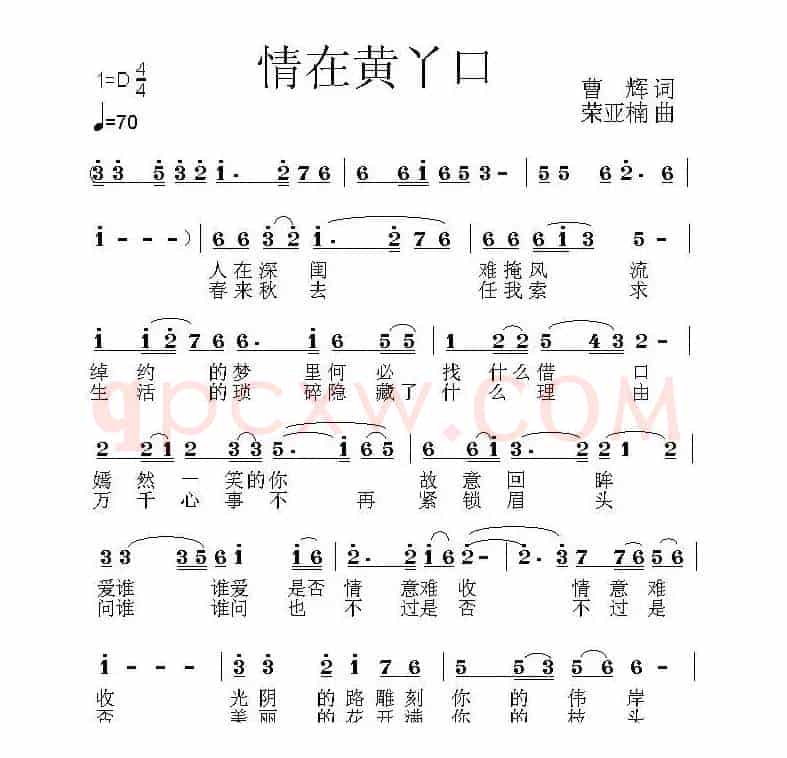 情在黄丫口
1=D 4/4
曹 辉 词
♩=70
荣亚楠 曲
(3 3 5 3 2 1. 2 7 6 | 6 6 1 6 5 3 - | 5 5 6 2. 6 |
1 - - -) | 6 6 3 2 1. 2 7 6 | 6 6 6 1 3 5 - |
人在深 闺 难掩风 流
春来秋 去 任我索 求
1 1 2 7 6 6. 1 6 5 5 | 1 2 2 5 4 3 2 - |
绰 约 的梦 里何 必 找 什么借 口
生 活 的琐 碎隐 藏了 什 么 理 由
qpcxw.COM
2 2 1 2 3 3 5. 1 6 5 | 6 6 1 3. 2 2 2 1 2 |
嫣 然 一 笑的你 故 意 回 眸
万 千 心 事 不 再 紧 锁 眉 头
3 3 3 3 5 6 1 1 6 | 2. 2 1 6 2 - | 2. 3 7 7 6 5 |
爱谁 谁爱 是否 情 意难 收 情 意 难
问谁 谁问 也 不 过是 否 不 过 是
1 - - - | 3 3 2 1 7 6 | 5 5 3 5 6 6 |
收 光阴 的路 雕刻 你 的 伟 岸
否 美丽 的花 开满 你 的 枝 头